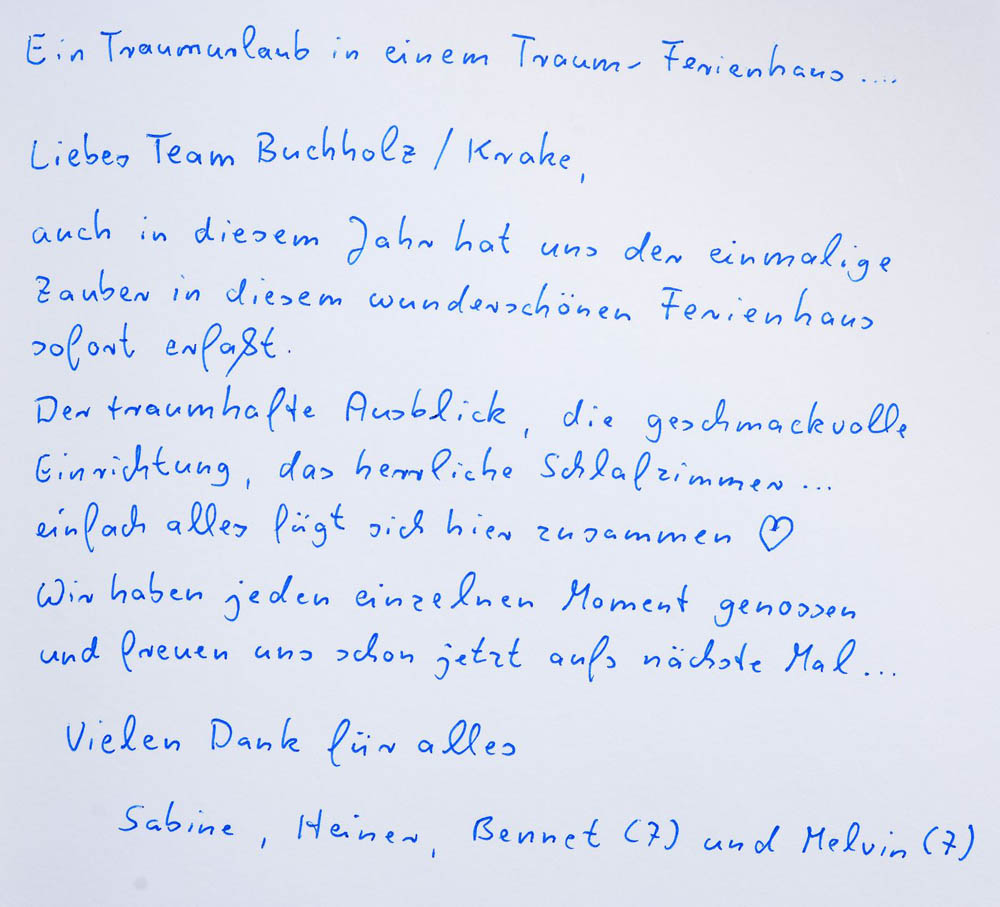 Ein Traumurlaub in einem Traum- Ferienhaus....
Liebes Team Buchholz / Krake,
auch in diesem Jahr hat uns der einmalige
Zauber in diesem wunderschönen Ferienhaus
sofort erfaßt.
Der traumhafte Ausblick, die geschmackvolle
Einrichtung, das herrliche Schlafzimmer...
einfach alles fügt sich hier zusammen ♡
Wir haben jeden einzelnen Moment genossen
und freuen uns schon jetzt aufs nächste Mal...
Vielen Dank für alles
Sabine, Heiner, Bennet (7) und Melvin (7)